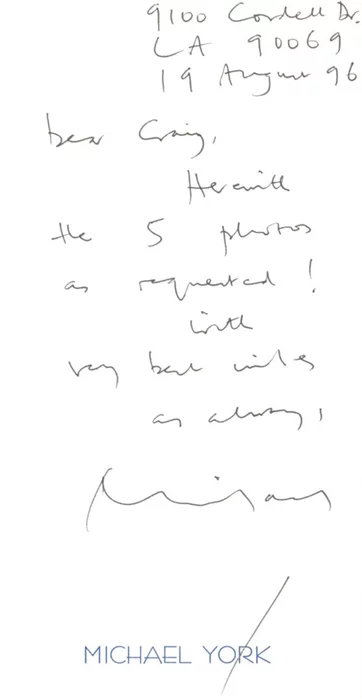 9100 Cordell Dr.
LA 90069
19 August 96
Dear Craig,
Herewith
the 5 photos
as requested!
With
very best wishes
as always,
Michael
MICHAEL YORK